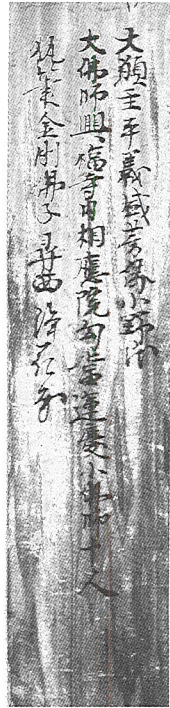 大願主平義盛芳縁小野氏
大佛師興福寺内相應院勾當運慶小佛師十人
執筆金剛佛子尋西浄花房